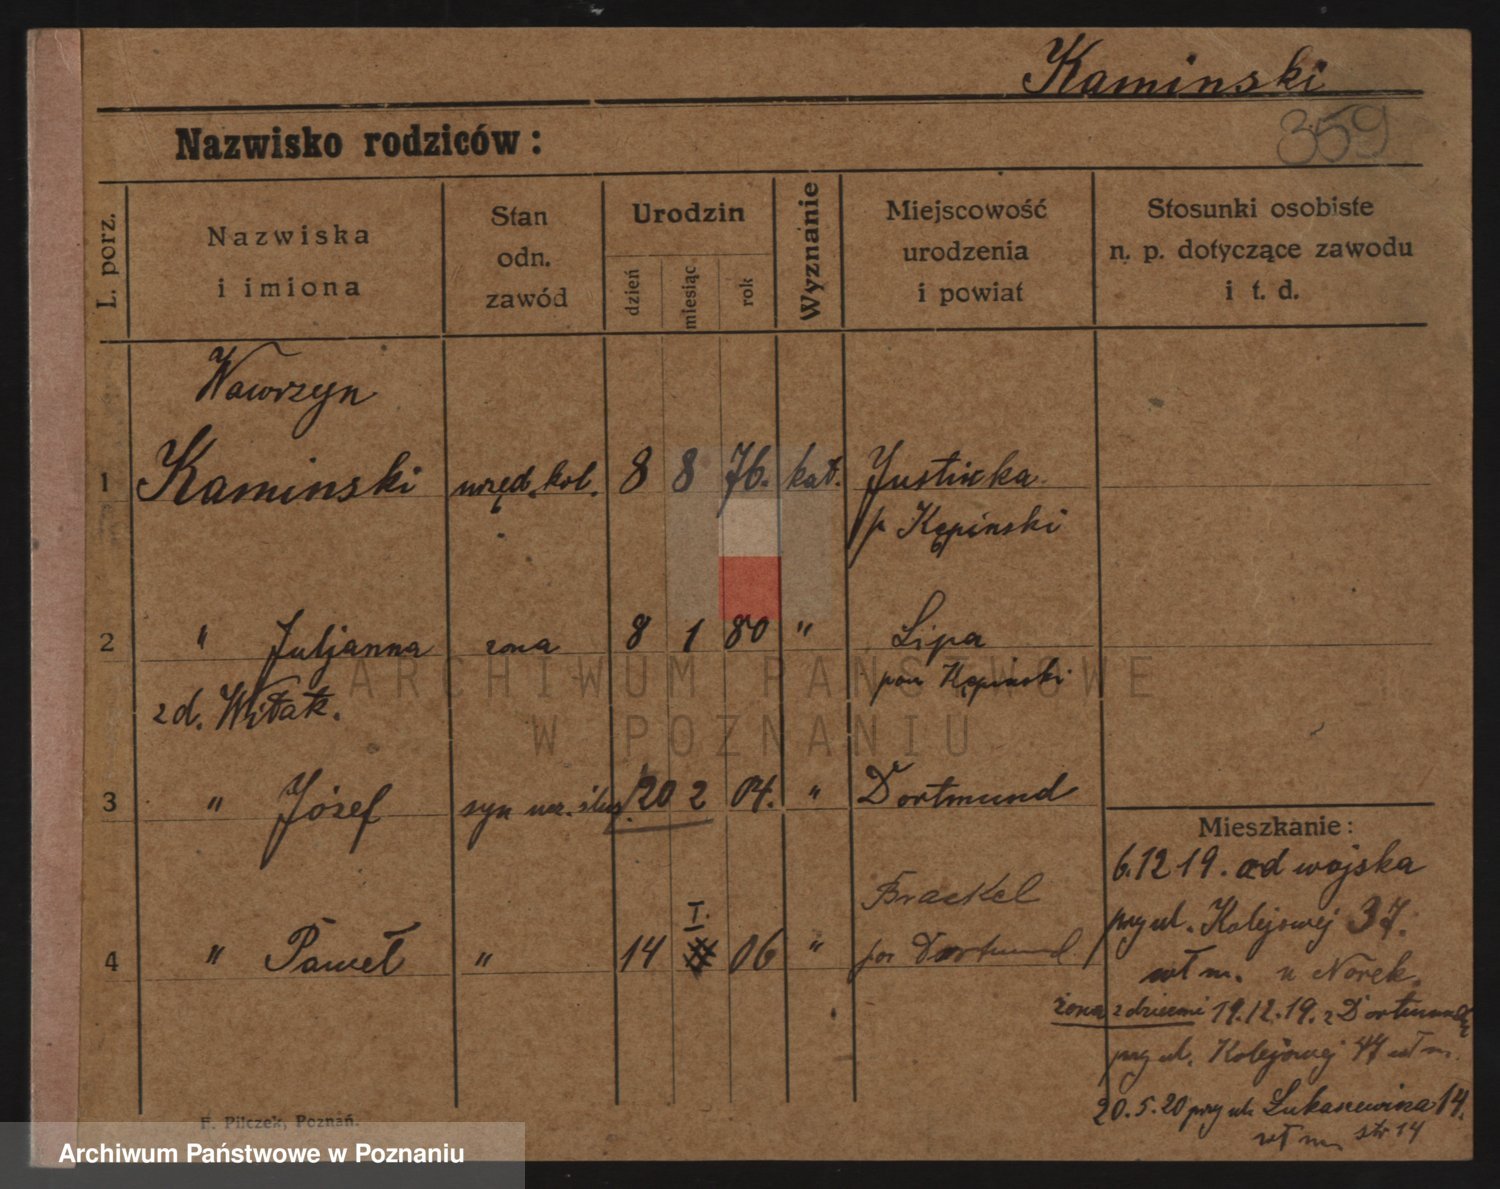 Kaminski
359
Nazwisko rodziców:
L. porz.
Nazwiska
i imiona
Stan
odn.
zawód
Urodzin
dzień
miesiąc
rok
Wyznanie
Miejscowość
urodzenia
i powiat
Stosunki osobiste
n. p. dotyczące zawodu
i t. d.
Wawrzyn
1 Kaminski urzęd. kol. 8 8 76. kat. Justinka
p Kępinski
2 " Juljanna żona 8 1 80 " Lipa
z d. Witak. pow Kępinski
3 " Józef syn ucz. ślus. 20 2 04. " Dortmund
Mieszkanie:
6.12 19. od wojska
przy ul. Kolejowej 37.
Brackel
I.
4 " Paweł " 14 06 " pow Dortmund
wł m. u Norek.
żona z dziecmi 19.12.19. z Dortmundu
przy ul. Kolejowej 47 wł m.
20.5.20 przy ul. Łukasiewicza 14.
wł m. str 14
F. Pilczek, Poznań.
ARCHIWUM PAŃSTWOWE
W POZNANIU
Archiwum Państwowe w Poznaniu